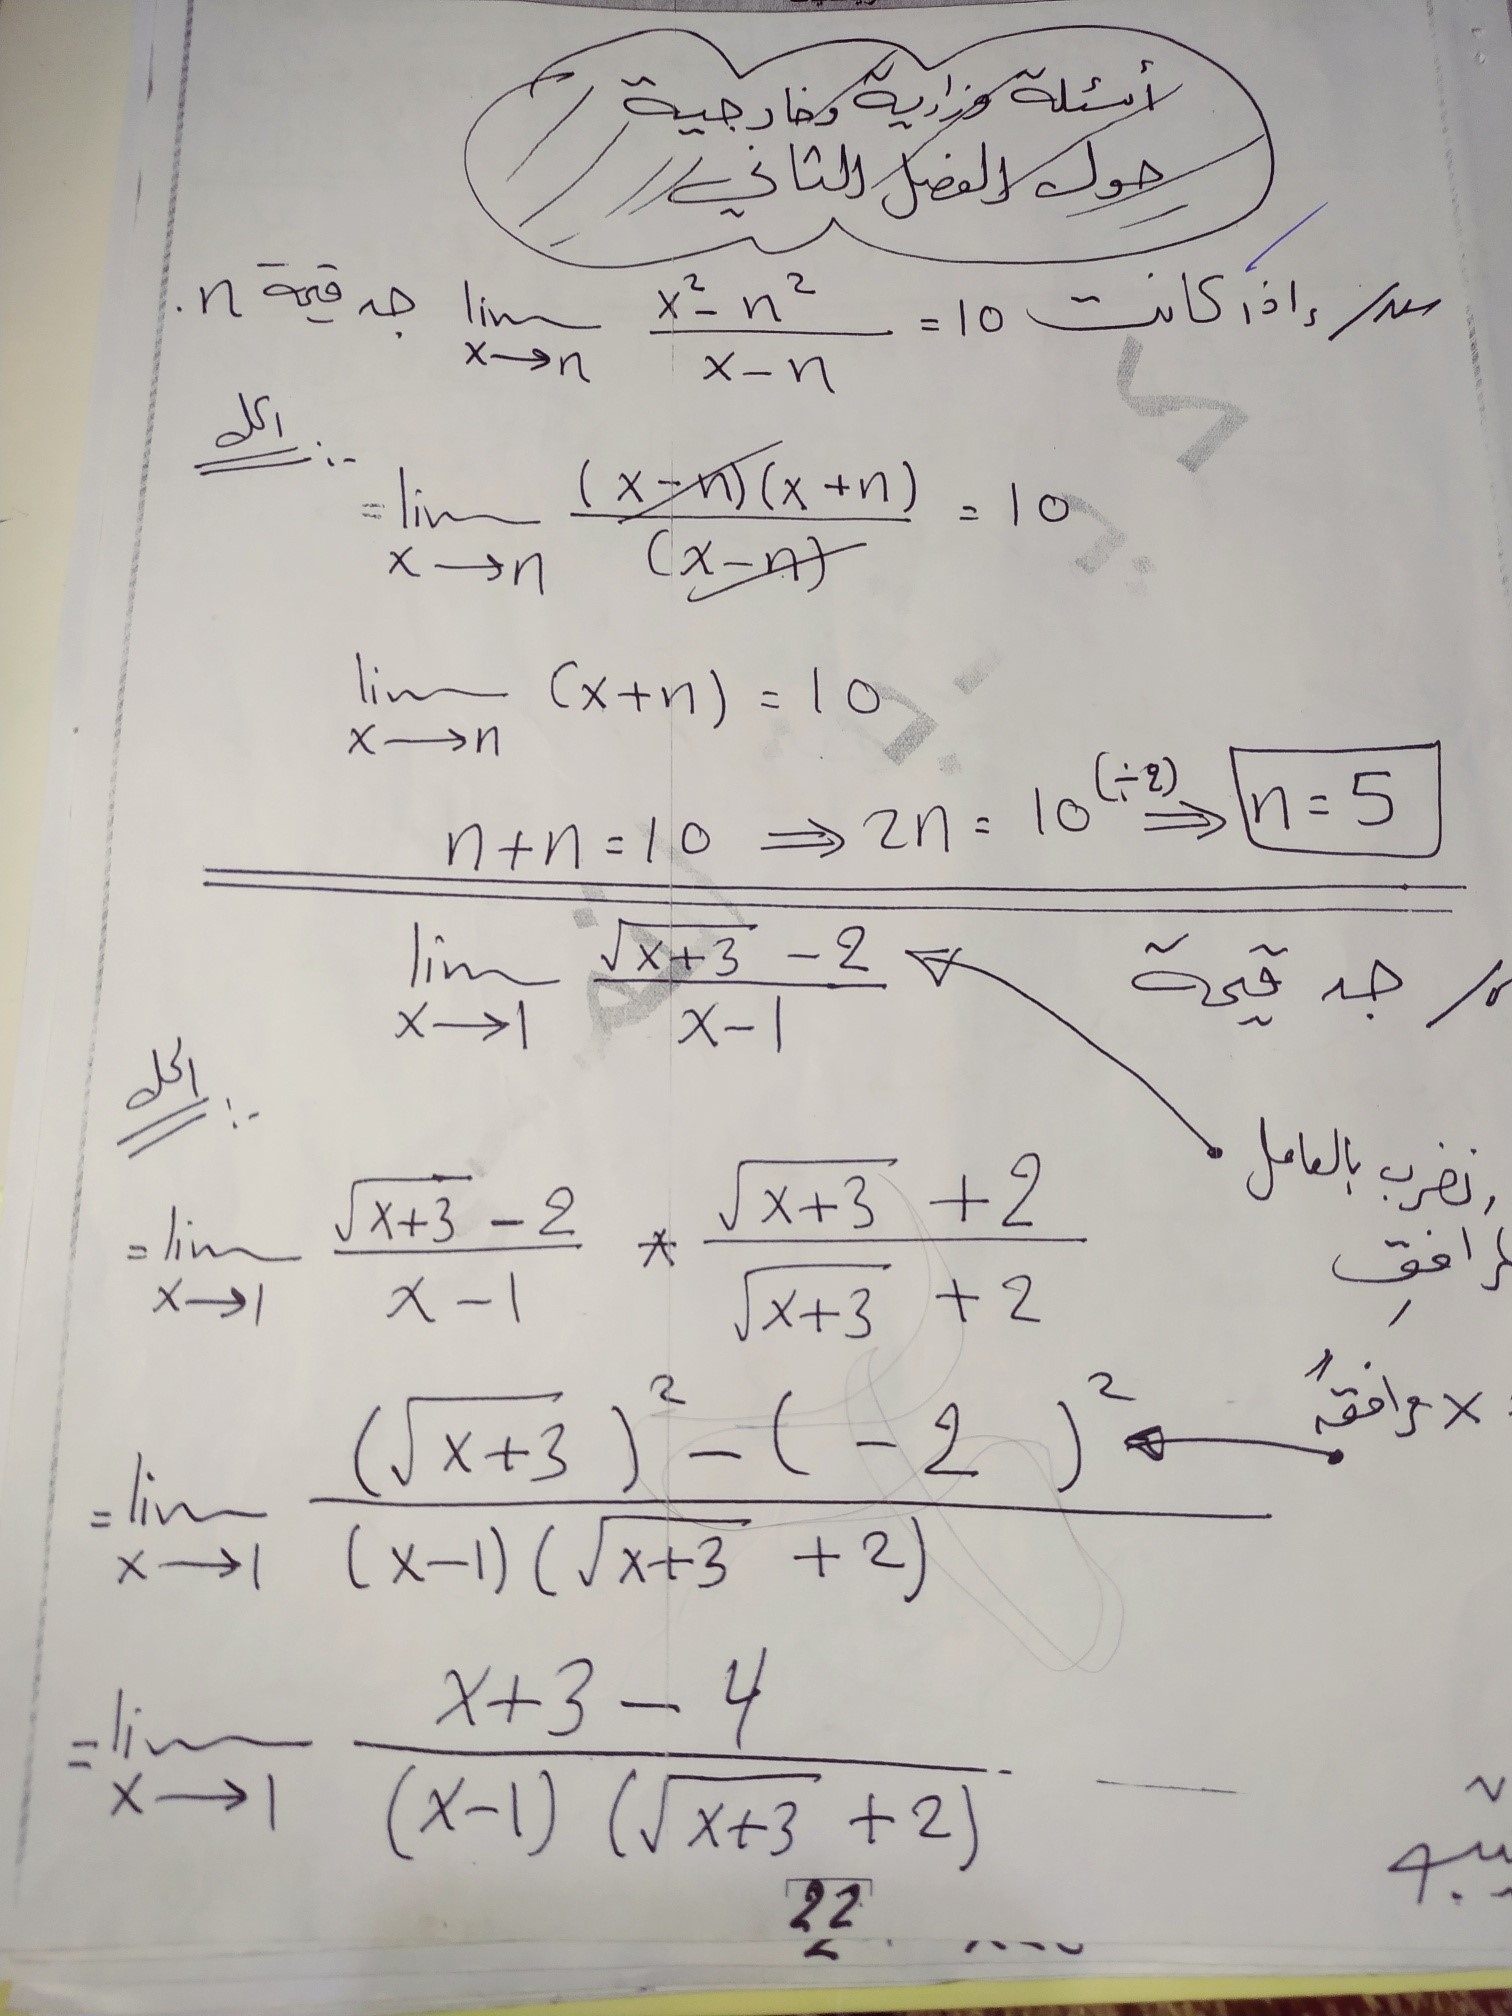 أسئلة وزارية وخارجية
حول الفصل الثاني
س/ إذا كانت lim x→n (x² - n²)/(x - n) = 10 جد قيمة n.
الحل
= lim x→n ((x-n)(x+n))/(x-n) = 10
lim x→n (x+n) = 10
n+n=10 ⇒ 2n = 10 (÷2) ⇒ n = 5
/ جد قيمة lim x→1 (√(x+3) - 2)/(x-1)
الحل
نضرب بالعامل
= lim x→1 (√(x+3) - 2)/(x-1) * (√(x+3) + 2)/(√(x+3) + 2)
x مرافقه
= lim x→1 ((√(x+3))² - (-2)²)/((x-1)(√(x+3) + 2))
= lim x→1 (x+3-4)/((x-1)(√(x+3) + 2))
22